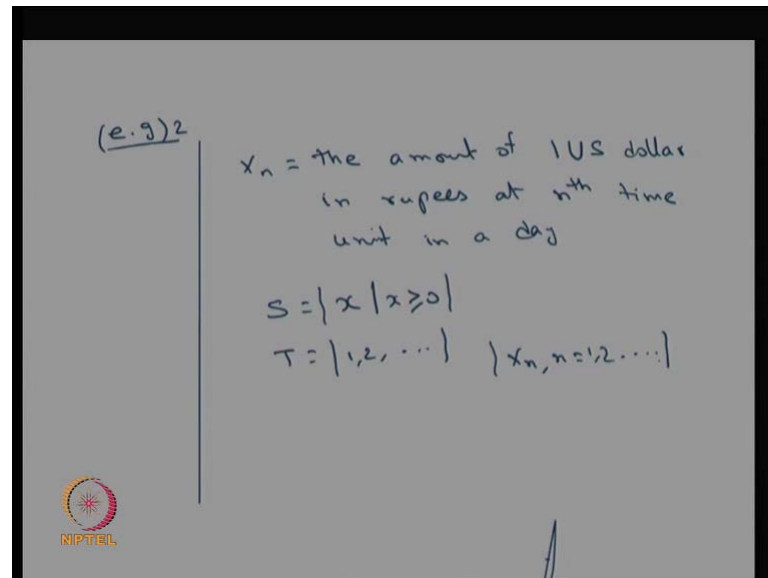 (e.g) 2
Xn = the amount of 1 US dollar
in rupees at nth time
unit in a day
S = {x | x ≥ 0}
T = {1, 2, ...} {Xn, n = 1, 2 ....}
NPTEL